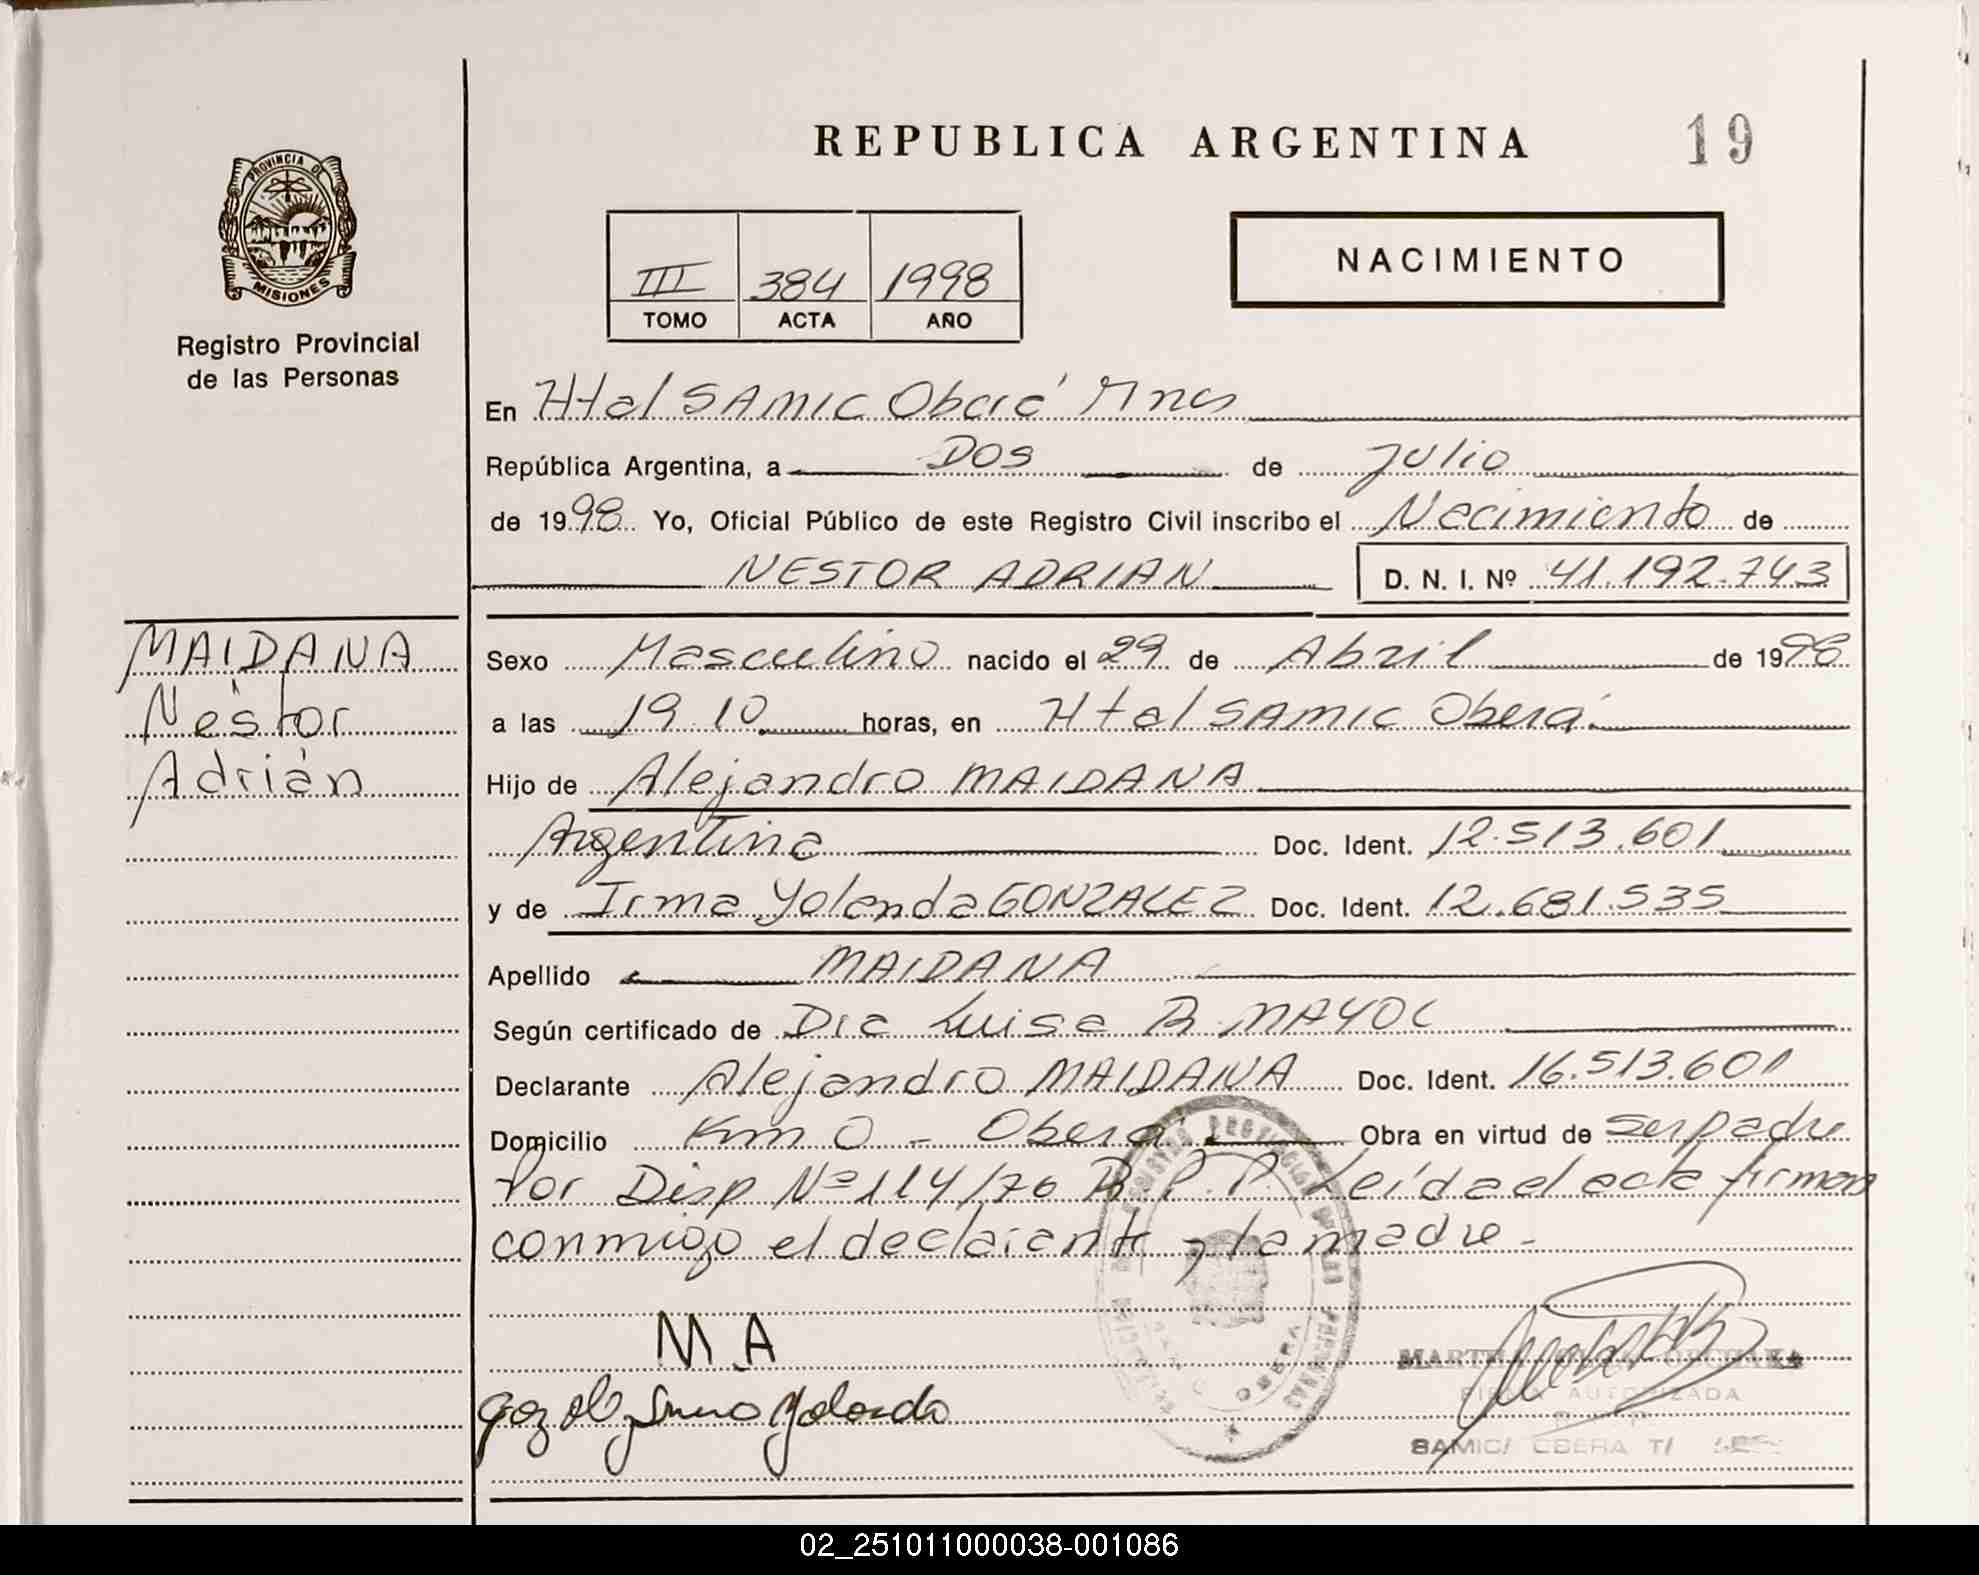 REPUBLICA ARGENTINA
19
PROVINCIA DE
MISIONES
Registro Provincial
de las Personas
III 384 1998
TOMO ACTA AÑO
NACIMIENTO
En Htal SAMIC Oberá Mnes
República Argentina, a DOS de Julio
de 1998 Yo, Oficial Público de este Registro Civil inscribo el Nacimiento de
NESTOR ADRIAN D. N. I. Nº 41.192.743
MAIDANA
Néstor
Adrián
Sexo Masculino nacido el 29 de Abril de 1998
a las 19.10 horas, en Htal SAMIC Oberá.
Hijo de Alejandro MAIDANA
Argentina Doc. Ident. 12.513.601
y de Irma Yolanda GONZALEZ Doc. Ident. 12.681.535
Apellido MAIDANA
Según certificado de Dra Luisa B. MAYOL
Declarante Alejandro MAIDANA Doc. Ident. 16.513.601
Domicilio Km 0 - Oberá Obra en virtud de ser padre
Por Disp Nº 114/76 R.P.P. Leída el acta firman
conmigo el declarante y la madre -
M A
Yolanda
FIRMA AUTORIZADA
SAMIC/ OBERA T/
OBERA
02_251011000038-001086